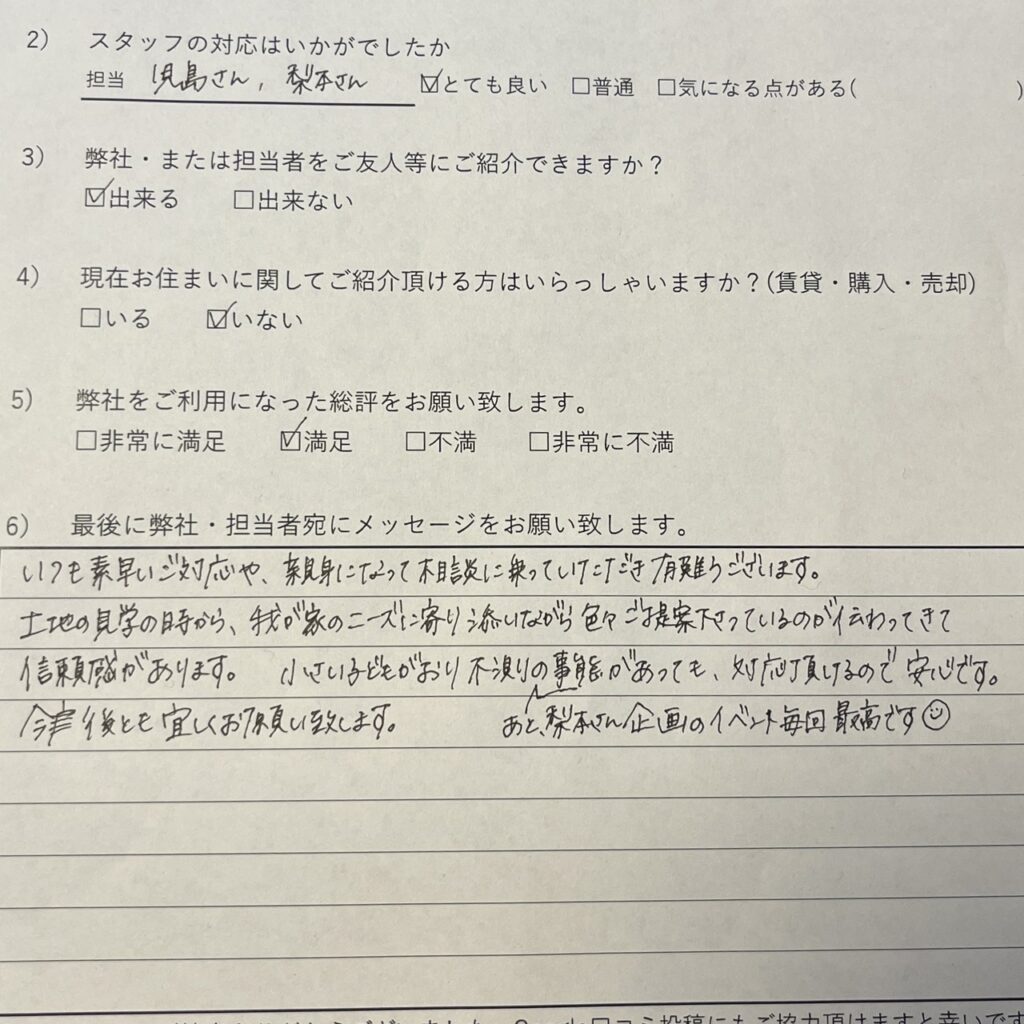 2) スタッフの対応はいかがでしたか
担当 児島さん, 梨本さん ☑とても良い □普通 □気になる点がある( )
3) 弊社・または担当者をご友人等にご紹介できますか？
☑出来る □出来ない
4) 現在お住まいに関してご紹介頂ける方はいらっしゃいますか？(賃貸・購入・売却)
□いる ☑いない
5) 弊社をご利用になった総評をお願い致します。
□非常に満足 ☑満足 □不満 □非常に不満
6) 最後に弊社・担当者宛にメッセージをお願い致します。
いつも素早いご対応や、親身になって相談に乗っていただき有難うございます。
土地の見学の時から、我が家のニーズに寄り添いながら色々ご提案下さっているのが伝わってきて
信頼感があります。 小さい子どもがおり不測の事態があっても、対応頂けるので安心です。
今後とも宜しくお願い致します。 あと、梨本さん企画のイベント毎回最高です☺
口コミ投稿にもご協力頂けますと幸いです